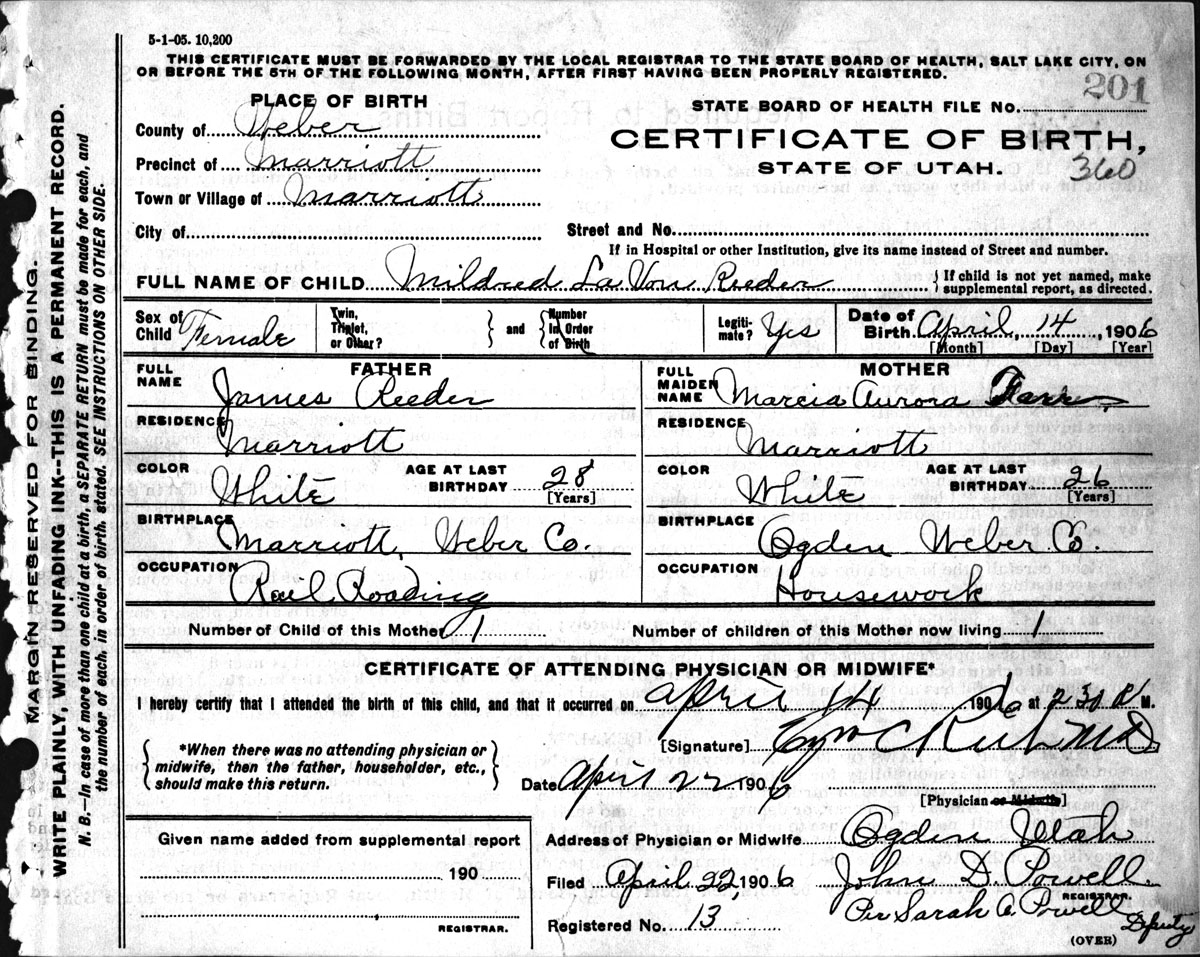 5-1-05. 10,200
THIS CERTIFICATE MUST BE FORWARDED BY THE LOCAL REGISTRAR TO THE STATE BOARD OF HEALTH, SALT LAKE CITY, ON
OR BEFORE THE 5TH OF THE FOLLOWING MONTH, AFTER FIRST HAVING BEEN PROPERLY REGISTERED.
201
PLACE OF BIRTH
STATE BOARD OF HEALTH FILE No.
County of Weber
CERTIFICATE OF BIRTH,
Precinct of Marriott
STATE OF UTAH. 360
Town or Village of Marriott
City of
Street and No.
If in Hospital or other Institution, give its name instead of Street and number.
FULL NAME OF CHILD Mildred La Von Reeder
{If child is not yet named, make
supplemental report, as directed.
Sex of
Child Female
Twin,
Triplet,
or Other? } and { Number
In Order
of Birth
Legiti-
mate? Yes
Date of
Birth April 14, 1906
[Month] [Day] [Year]
FATHER
FULL
NAME James Reeder
RESIDENCE
Marriott
COLOR
White
AGE AT LAST
BIRTHDAY 28
[Years]
BIRTHPLACE
Marriott, Weber Co.
OCCUPATION
Rail Roading
MOTHER
FULL
MAIDEN
NAME Marcia Aurora Farr
RESIDENCE
Marriott
COLOR
White
AGE AT LAST
BIRTHDAY 26
[Years]
BIRTHPLACE
Ogden Weber Co.
OCCUPATION
Housework
Number of Child of this Mother 1
Number of children of this Mother now living 1
CERTIFICATE OF ATTENDING PHYSICIAN OR MIDWIFE*
I hereby certify that I attended the birth of this child, and that it occurred on April 14 1906 at 230 M.
[Signature] M.D.
{ *When there was no attending physician or
midwife, then the father, householder, etc.,
should make this return. }
Date April 22 1906
[Physician or Midwife]
Given name added from supplemental report
190
REGISTRAR.
Address of Physician or Midwife Ogden Utah
Filed April 22, 1906 John D. Powell.
REGISTRAR.
Registered No. 13 Per Sarah A. Powell
Deputy
(OVER)
MARGIN RESERVED FOR BINDING.
WRITE PLAINLY, WITH UNFADING INK--THIS IS A PERMANENT RECORD.
N. B.--In case of more than one child at a birth, a SEPARATE RETURN must be made for each, and
the number of each, in order of birth, stated. SEE INSTRUCTIONS ON OTHER SIDE.